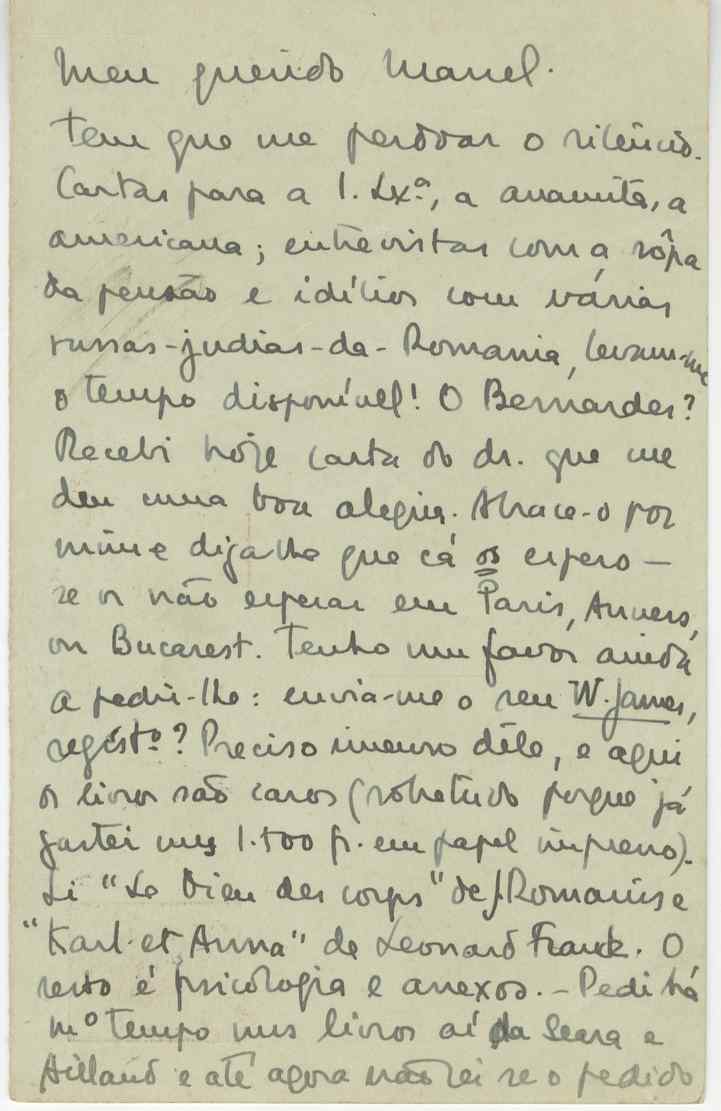 Meu querido Manel.
Tem que me perdoar o silêncio.
Cartas para a I. Lxª, a anamita, a
americana; entrevistas com a rôpa
da pensão e idílios com várias
russas-judias-da-Romania, levam-me
o tempo disponível! O Bernardes?
Recebi hoje carta do dr. que me
deu uma boa alegria. Abrace-o por
mim e diga-lhe que cá os espero —
se os não esperar em Paris, Anvers,
ou Bucarest. Tenho um favor ainda
a pedir-lhe: envia-me o seu W. James,
regist.º? Preciso imenso dêle, e aqui
os livros são caros (sobretudo porque já
gastei uns 1.500 fr. em papel impresso).
Li "Le Dieu des corps" de J. Romains e
"Karl et Anna" de Leonard Frank. O
resto é psicologia e anexos. – Pedi há
mº tempo uns livros aí da Seara e
Aillaud e até agora não sei se o pedido